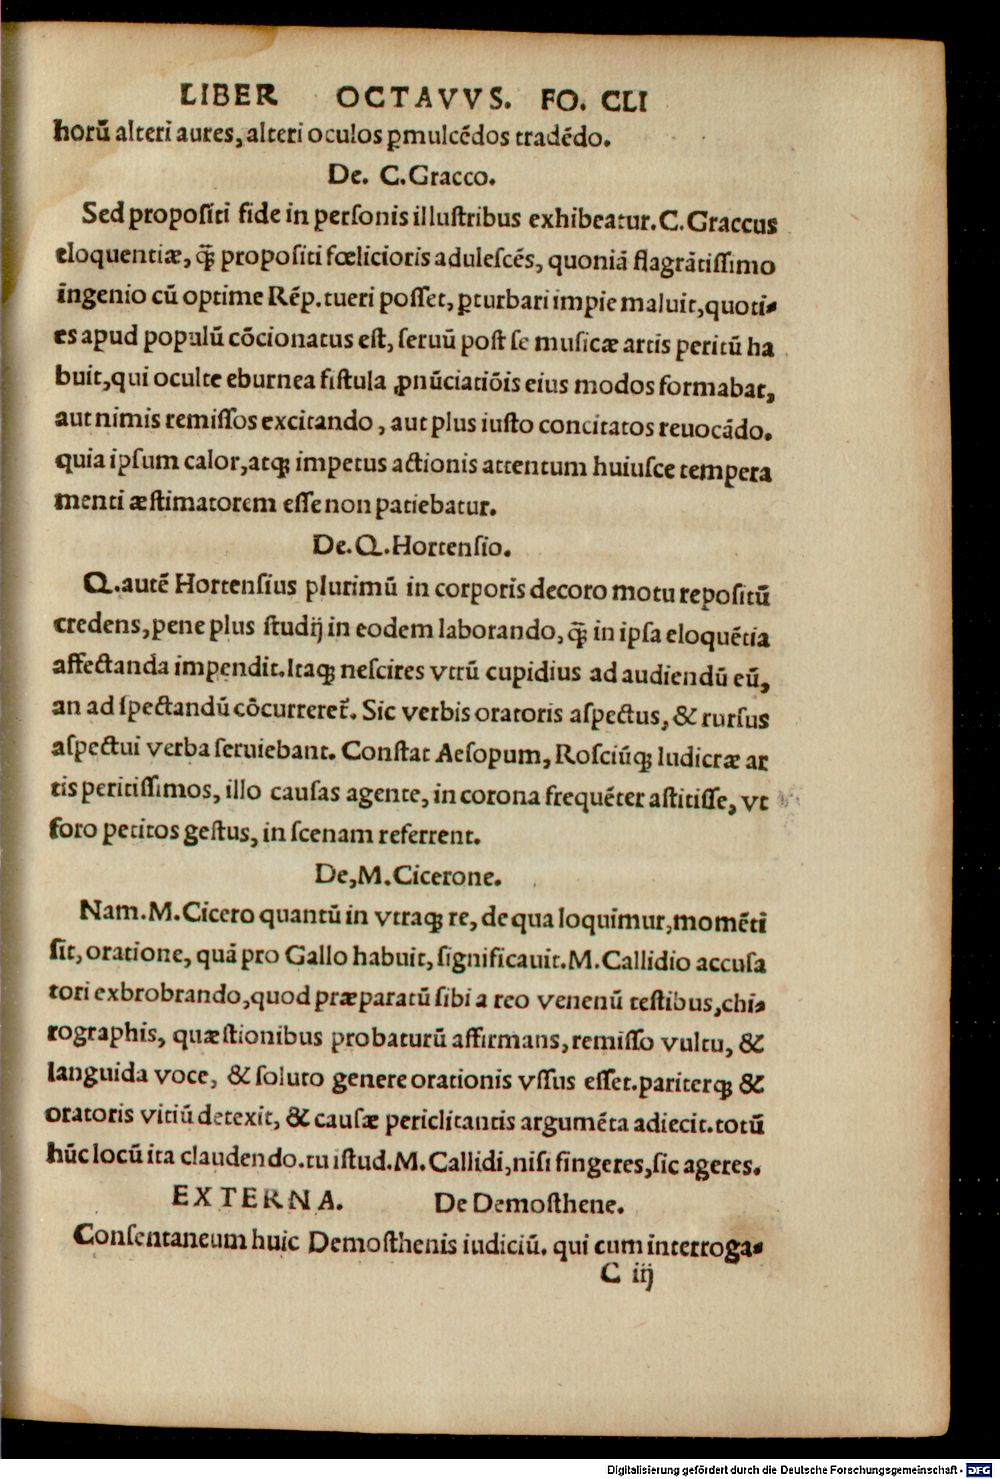 LIBER OCTAVVS. FO. CLI
horũ alteri aures, alteri oculos ꝑmulcẽdos tradẽdo.
De. C.Gracco.
Sed propositi fide in personis illustribus exhibeatur. C. Graccus
eloquentiæ, q̃ꝫ propositi fœlicioris adulescẽs, quoniã flagrãtissimo
ingenio cũ optime Rẽp. tueri posset, ꝑturbari impie maluit, quoti⸗
es apud populũ cõcionatus est, seruũ post se musicæ artis peritũ ha
buit, qui oculte eburnea fistula ꝓnũciatiõis eius modos formabat,
aut nimis remissos excitando, aut plus iusto concitatos reuocãdo.
quia ipsum calor, atqꝫ impetus actionis attentum huiusce tempera
menti æstimatorem esse non patiebatur.
De. Q. Hortensio.
Q. autẽ Hortensius plurimũ in corporis decoro motu repositũ
credens, pene plus studij in eodem laborando, q̃ꝫ in ipsa eloquẽtia
affectanda impendit. Itaqꝫ nescires vtrũ cupidius ad audiendũ eũ,
an ad spectandũ cõcurreret̃. Sic verbis oratoris aspectus, & rursus
aspectui verba seruiebant. Constat Aesopum, Rosciũqꝫ ludicræ ar
tis peritissimos, illo causas agente, in corona frequẽter astitisse, vt
foro petitos gestus, in scenam referrent.
De, M. Cicerone.
Nam. M. Cicero quantũ in vtraqꝫ re, de qua loquimur, momẽti
sit, oratione, quã pro Gallo habuit, significauit. M. Callidio accusa
tori exbrobrando, quod præparatũ sibi a reo venenũ testibus, chi⸗
rographis, quæstionibus probaturũ affirmans, remisso vultu, &
languida voce, & soluto genere orationis vssus esset. pariterqꝫ &
oratoris vitiũ detexit, & causæ periclitantis argumẽta adiecit. totũ
hũc locũ ita claudendo. tu istud. M. Callidi, nisi fingeres, sic ageres.
EXTERNA. De Demosthene.
Consentaneum huic Demosthenis iudiciũ. qui cum interroga⸗
C iij
Digitalisierung gefördert durch die Deutsche Forschungsgemeinschaft - DFG